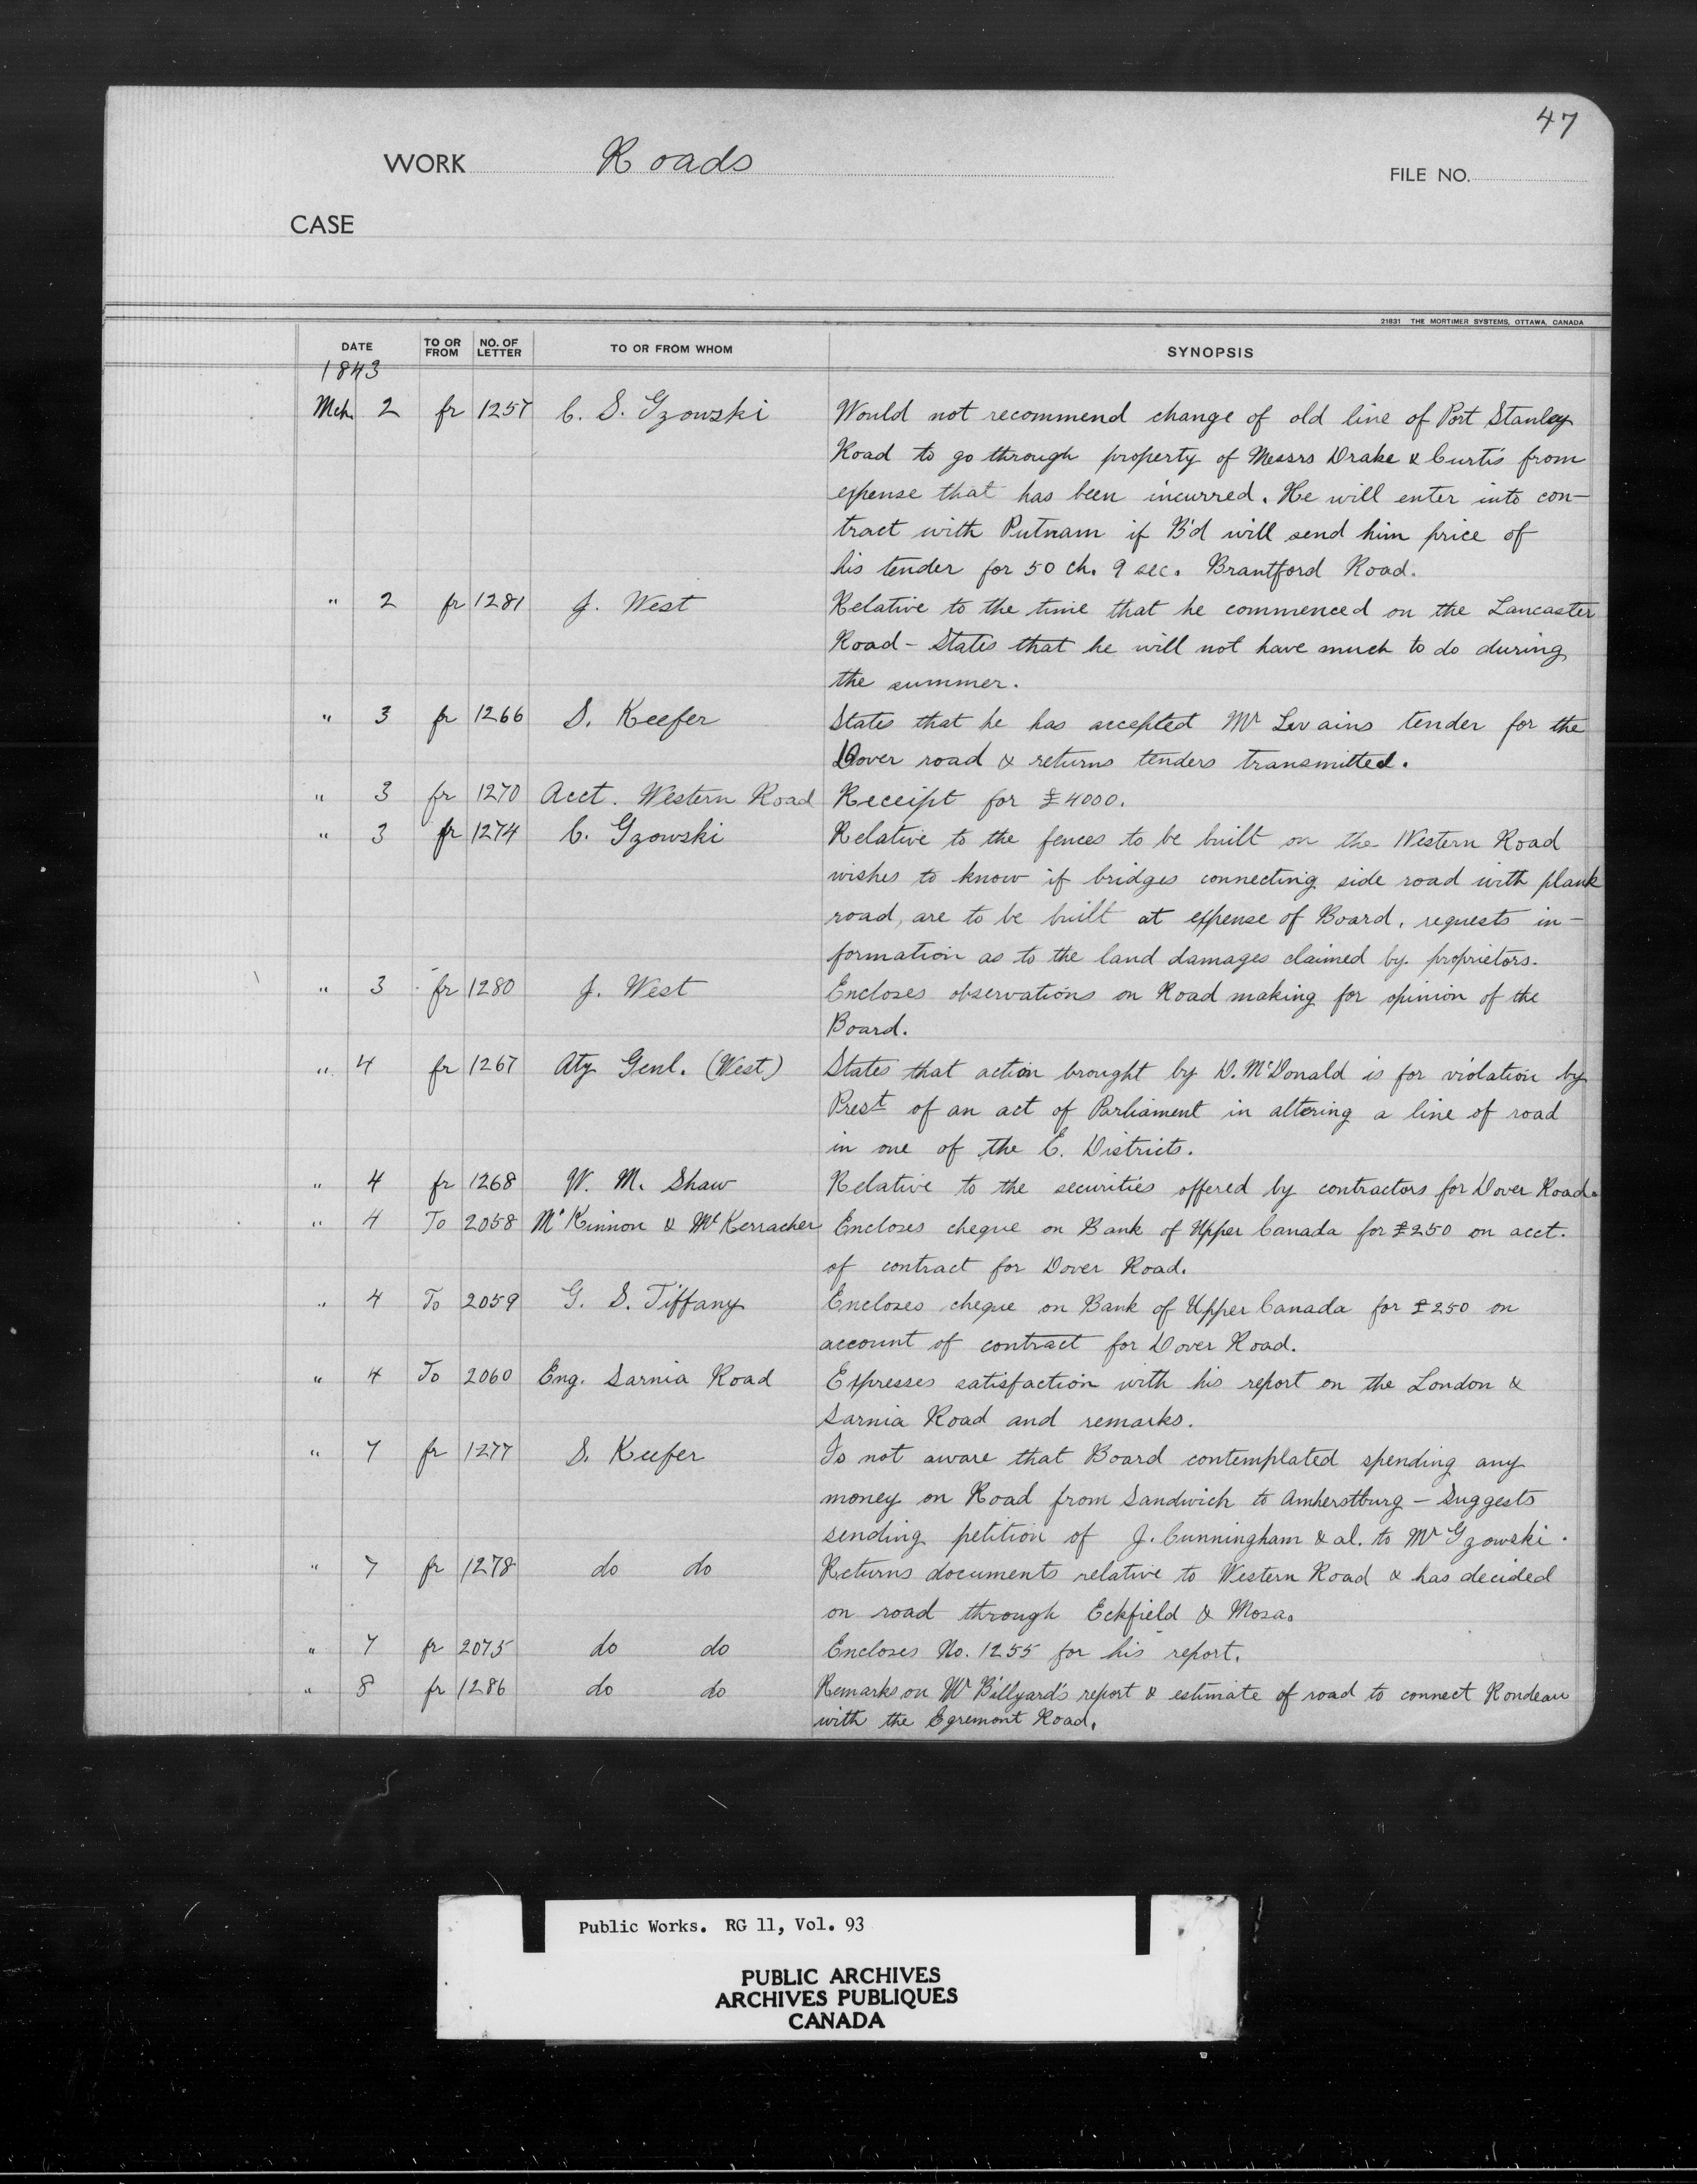 47
WORK Roads
FILE NO.
CASE
21831 THE MORTIMER SYSTEMS, OTTAWA, CANADA
DATE TO OR FROM NO. OF LETTER TO OR FROM WHOM SYNOPSIS
1843
Mch. 2 fr 1257 C. S. Gzowski Would not recommend change of old line of Port Stanley
Road to go through property of Messrs Drake & Curtis from
expense that has been incurred. He will enter into con-
tract with Putnam if B'd will send him price of
his tender for 50 ch. 9 sec. Brantford Road.
" 2 fr 1281 J. West Relative to the time that he commenced on the Lancaster
Road - States that he will not have much to do during
the summer.
" 3 fr 1266 S. Keefer States that he has accepted Mr tender for the
Dover road & returns tenders transmitted.
" 3 fr 1270 Acct. Western Road Receipt for £4000.
" 3 fr 1274 C. Gzowski Relative to the fences to be built on the Western Road
wishes to know if bridges connecting side road with plank
road, are to be built at expense of Board, requests in-
formation as to the land damages claimed by proprietors.
" 3 fr 1280 J. West Encloses observations on Road making for opinion of the
Board.
" 4 fr 1267 Aty Genl. (West) States that action brought by D. McDonald is for violation by
Prest of an act of Parliament in altering a line of road
in one of the E. Districts.
" 4 fr 1268 W. M. Shaw Relative to the securities offered by contractors for Dover Road.
" 4 To 2058 McKinnon & McKerracher Encloses cheque on Bank of Upper Canada for £250 on acct.
of contract for Dover Road.
" 4 To 2059 G. S. Tiffany Encloses cheque on Bank of Upper Canada for £250 on
account of contract for Dover Road.
" 4 To 2060 Eng. Sarnia Road Expresses satisfaction with his report on the London &
Sarnia Road and remarks.
" 7 fr 1277 S. Keefer Is not aware that Board contemplated spending any
money on Road from Sandwich to Amherstburg - Suggests
sending petition of J. Cunningham & al. to Mr Gzowski.
" 7 fr 1278 do do Returns documents relative to Western Road & has decided
on road through Eckfield & Mosa.
" 7 fr 2075 do do Encloses No. 1255 for his report.
" 8 fr 1286 do do Remarks on Mr Billyard's report & estimate of road to connect Rondeau
with the Egremont Road.
Public Works. RG 11, Vol. 93
PUBLIC ARCHIVES
ARCHIVES PUBLIQUES
CANADA